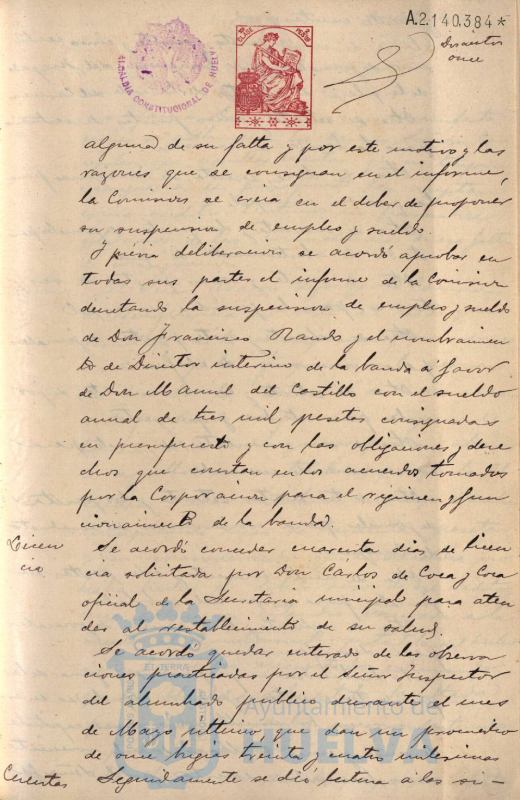 A.2.140.384*
Doscientos
once
ALCALDIA CONSTITUCIONAL DE HUELVA
CLASE
alguna de su falta y por este motivo y las
razones que se consignan en el informe,
la Comision se creia en el deber de proponer
su suspension de empleo y sueldo.
Y prévia deliberacion se acordó aprobar en
todas sus partes el informe de la Comision
decretando la suspension de empleo y sueldo
de Don Francisco y el nombramien
to de Director interino de la banda á favor
de Don Manuel del Castillo con el sueldo
anual de tres mil pesetas consignadas
en presupuesto y con las obligaciones y dere
chos que constan en los acuerdos tomados
por la Corporacion para el regimen y fun
cionamiento de la banda.
Licen
cia
Se acordó conceder cuarenta dias de licen
cia solicitada por Don Carlos de Coca y Coca
oficial de la Secretaria municipal para aten
der al restablecimiento de su salud.
Se acordó quedar enterado de las observa
ciones practicadas por el Señor Inspector
del alumbrado público durante el mes
de Mayo último, que dan un promedio
de once bugias treinta y cuatro milesimas
Cuentas
Seguidamente se dió lectura á las si-
Ayuntamiento de
HUELVA